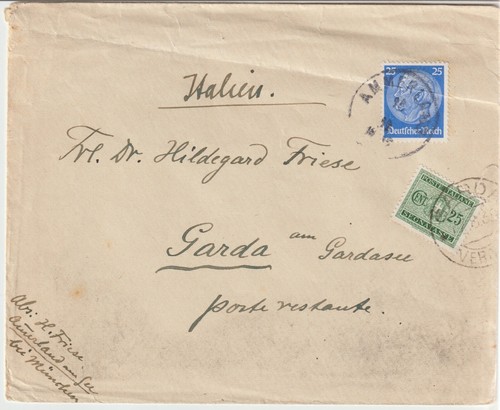 Italien.
25 25
AMMERL
Deutsches Reich
Frl. Dr. Hildegard Friese
POSTE ITALIANE
25
SEGNATASSE
Garda am Gardasee
VER
poste restante.
Abs. H. Friese.
bei München